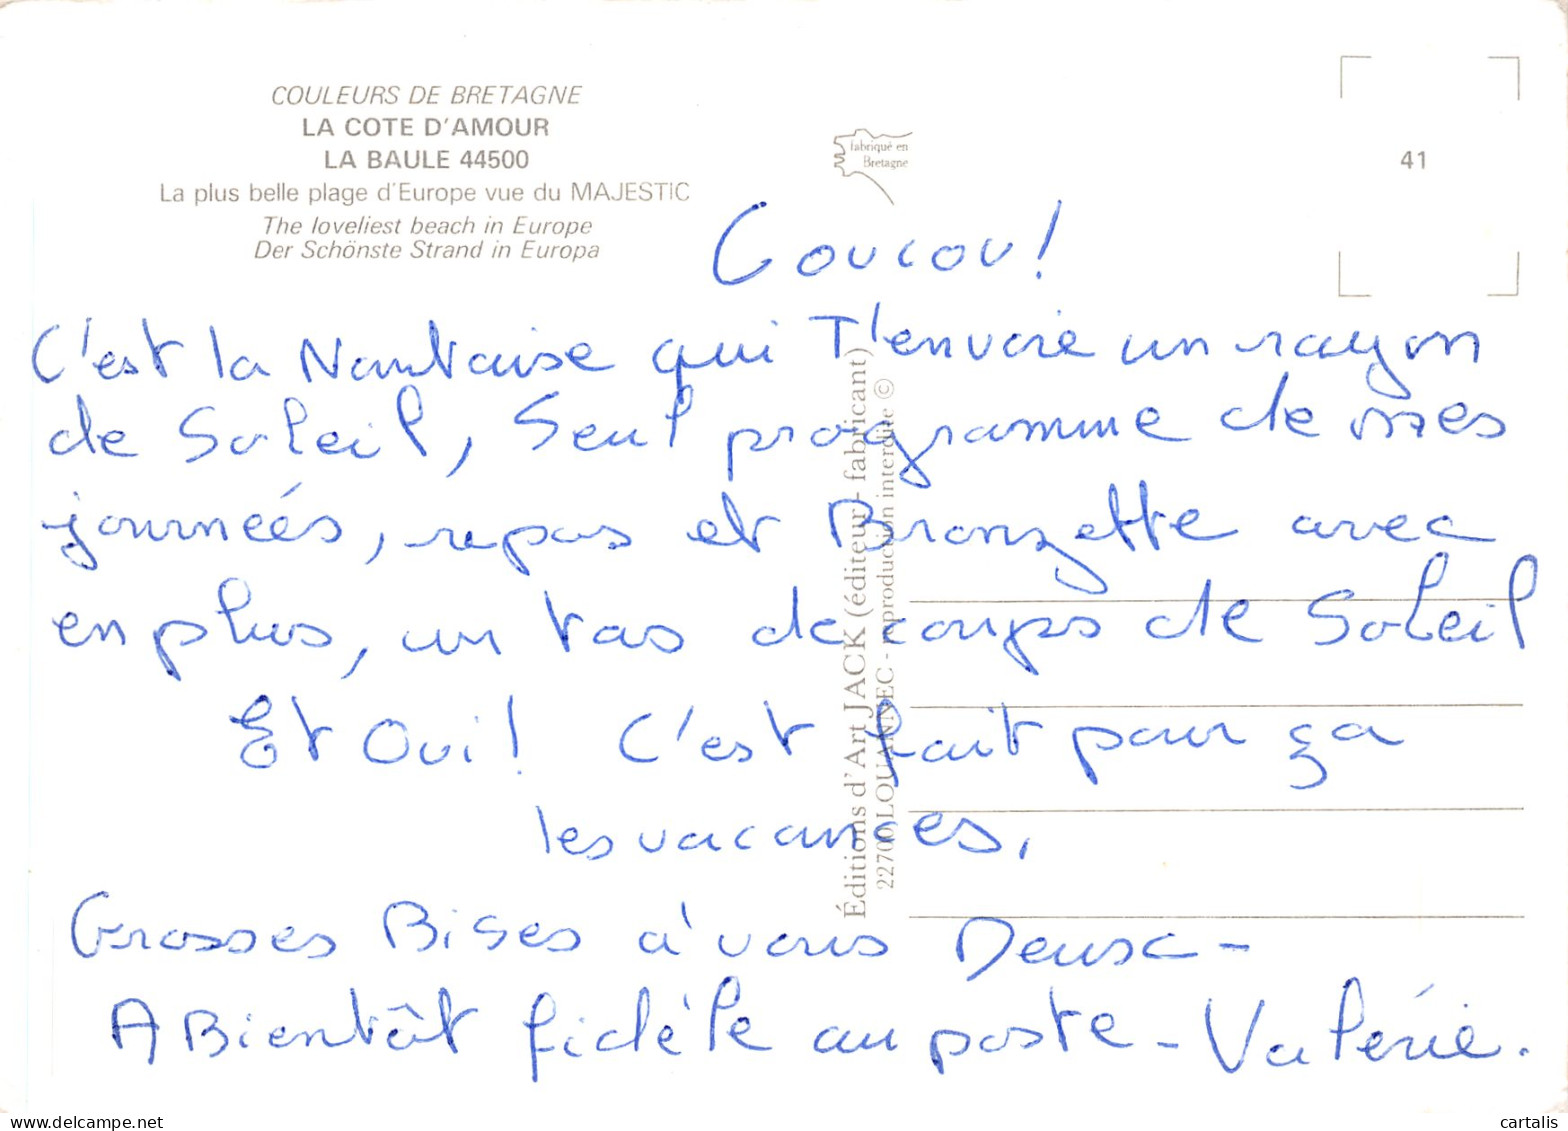 COULEURS DE BRETAGNE
LA COTE D'AMOUR
LA BAULE 44500
La plus belle plage d'Europe vue du MAJESTIC
The loveliest beach in Europe
Der Schönste Strand in Europa
fabriqué en
Bretagne
41
Coucou!
C'est la Nantaise qui T'envoie un rayon
de Soleil, Seul programme de mes
journées, repas et Bronzette avec
en plus, un tas de coups de Soleil
Et Oui! C'est fait pour ça
les vacances.
Grosses Bises à vous Deux -
A Bientôt fidèle au poste - Valérie.
Éditions d'Art JACK (éditeur - fabricant)
22700 LOUANNEC - reproduction interdite ©
cartalis